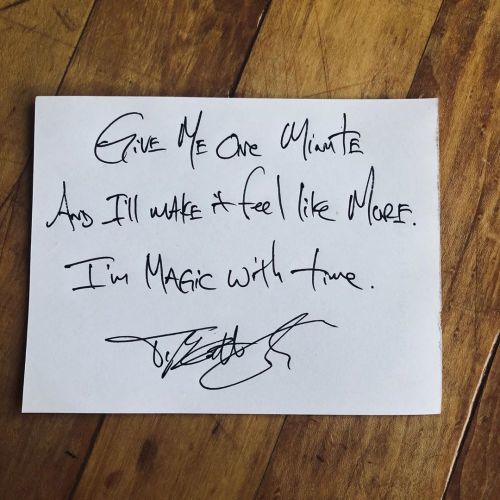 Give Me One Minute
And I'll make it feel like More.
I'm Magic with time.